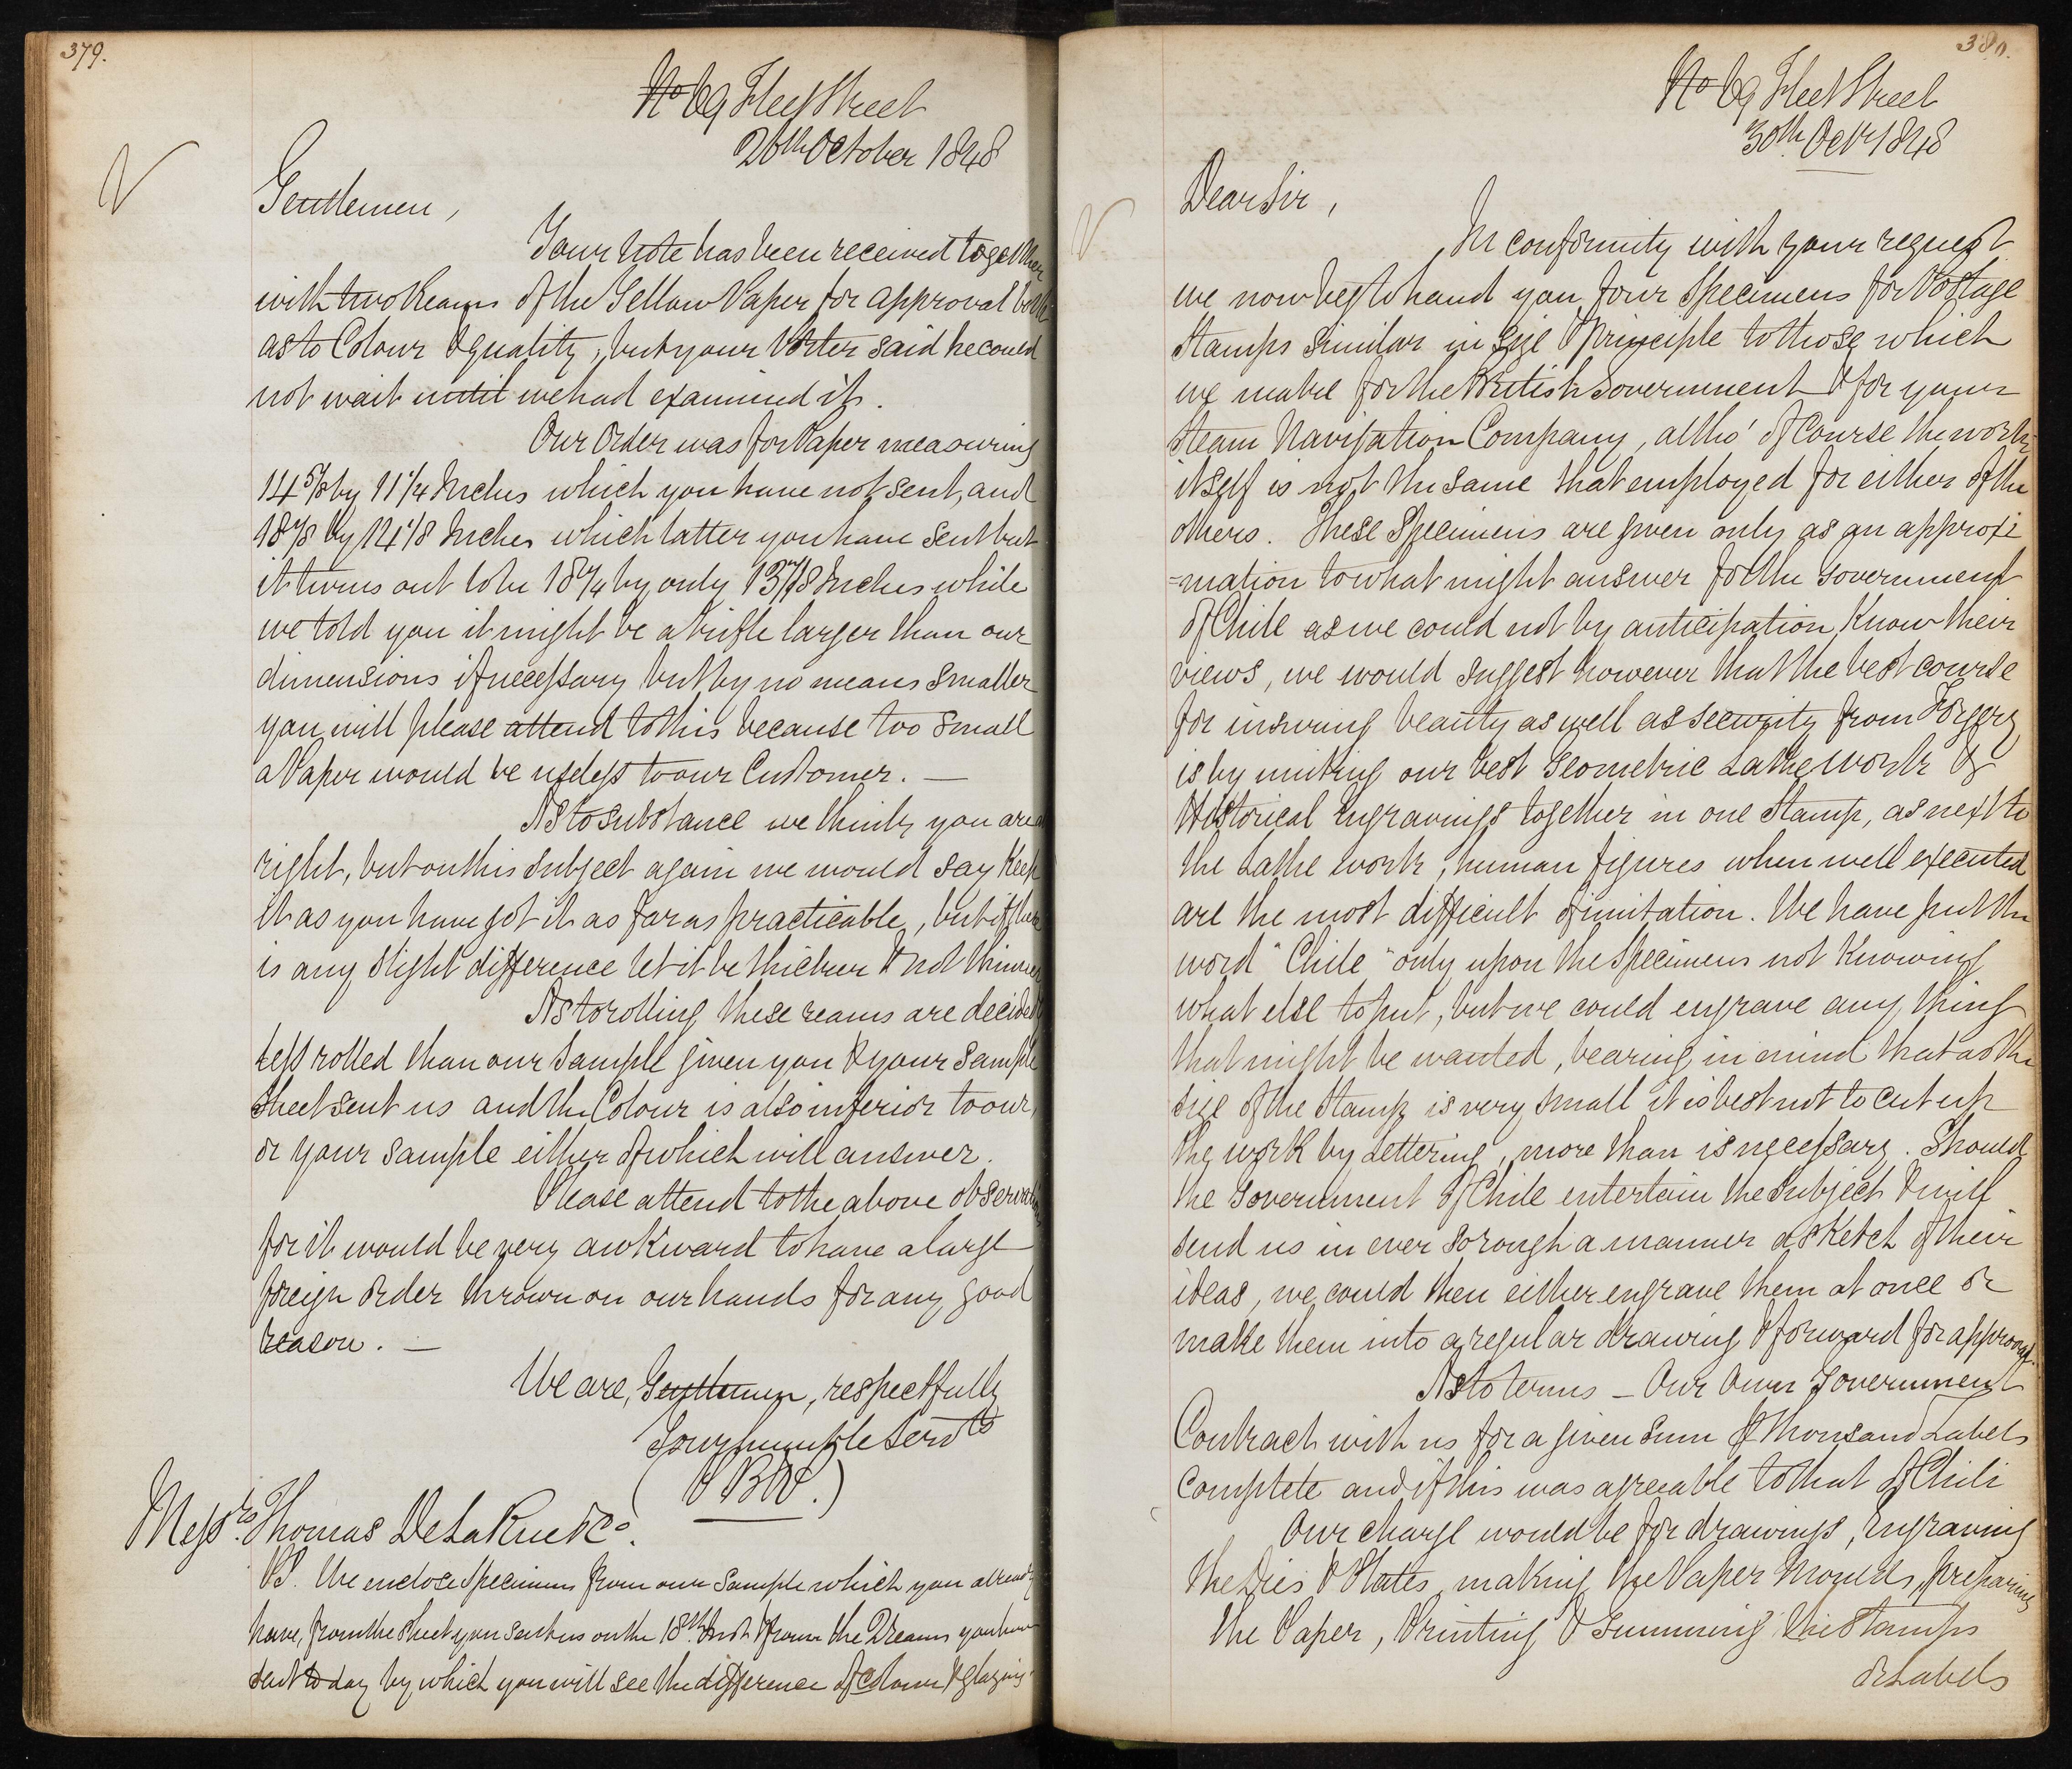 379.
No 69 Fleet Street
26th October 1848
Gentlemen,
Your note has been received together
with two Reams of the Yellow Paper for approval both
as to Colour & quality, but your Porter said he could
not wait until we had examined it.
Our Order was for Paper measuring
14 5/8 by 11 1/4 Inches which you have not sent, and
by 14 1/8 Inches which latter you have sent but
it turns out to be by only Inches while
we told you it might be a trifle larger than our
dimensions if necessary but by no means smaller
you will please attend to this because too small
a Paper would be useless to our Customer. —
As to substance we think you are
right, but on this subject again we would say Keep
it as you have got it as far as practicable, but if there
is any slight difference let it be thicker & not thinner
As to rolling these reams are decidedly
less rolled than our sample given you & your sample
sheet sent us and the Colour is also inferior to our,
or your sample either of which will answer.
Please attend to the above observations
for it would be very awkward to have a large
foreign order thrown on our hands for any good
reason. —
We are, Gentlemen, respectfully
Your humble Servts
(PBW.)
Messrs. Thomas De La Rue & Co.
PS. We enclose specimens from our sample which you already
have, from the sheet you sent us on the 18th Inst & from the 2 Reams you have
sent to day by which you will see the difference of colour & glazing.
380.
No 69 Fleet Street
30th Octr 1848
Dear Sir,
In conformity with your request
we now beg to hand you four Specimens for Postage
Stamps similar in size & principle to those which
we make for the British Government & for your
Steam Navigation Company, altho' of course the work
itself is not the same that employed for either of the
others. These Specimens are given only as an approxi
=mation to what might answer for the Government
of Chile as we could not by anticipation Know their
views, we would suggest however that the best course
for insuring beauty as well as security from Forgery
is by uniting our best Geometric Lathe work &
Historical Engravings together in one Stamp, as next to
the Lathe work, human figures when well executed
are the most difficult of imitation. We have put the
word "Chile" only upon the Specimens not Knowing
what else to put, but we could engrave any thing
that might be wanted, bearing in mind that as the
size of the Stamp is very small it is best not to cut up
the work by Lettering, more than is necessary. Should
the Government of Chile entertain the subject & will
send us in ever so rough a manner a sketch of their
ideas, we could then either engrave them at once or
make them into a regular drawing & forward for approval.
As to terms — Our Own Government
Contract with us for a given sum thousand Labels
complete and if this was agreeable to that of Chili
Our charge would be for drawings, Engraving
the Dies & Plates, making the Paper Moulds, preparing
the Paper, Printing & Gumming the Stamps
or Labels